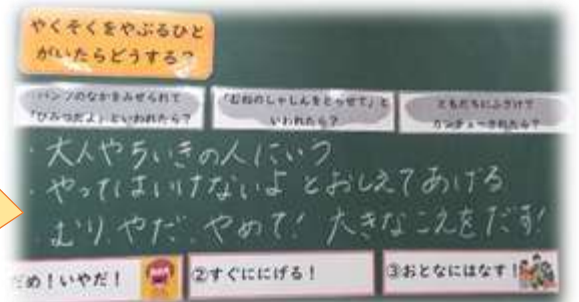 やくそくをやぶるひと
がいたらどうする？
パンツのなかをみせられて
「ひみつだよ」といわれたら？
「むねのしゃしんをとらせて」と
いわれたら？
ともだちにふざけて
カンチョーされたら？
・大人やちいきの人にいう
・やってはいけないよ とおしえてあげる
・むり、やだ やめて！ 大きなこえをだす！
だめ！いやだ！
②すぐににげる！
③おとなにはなす！